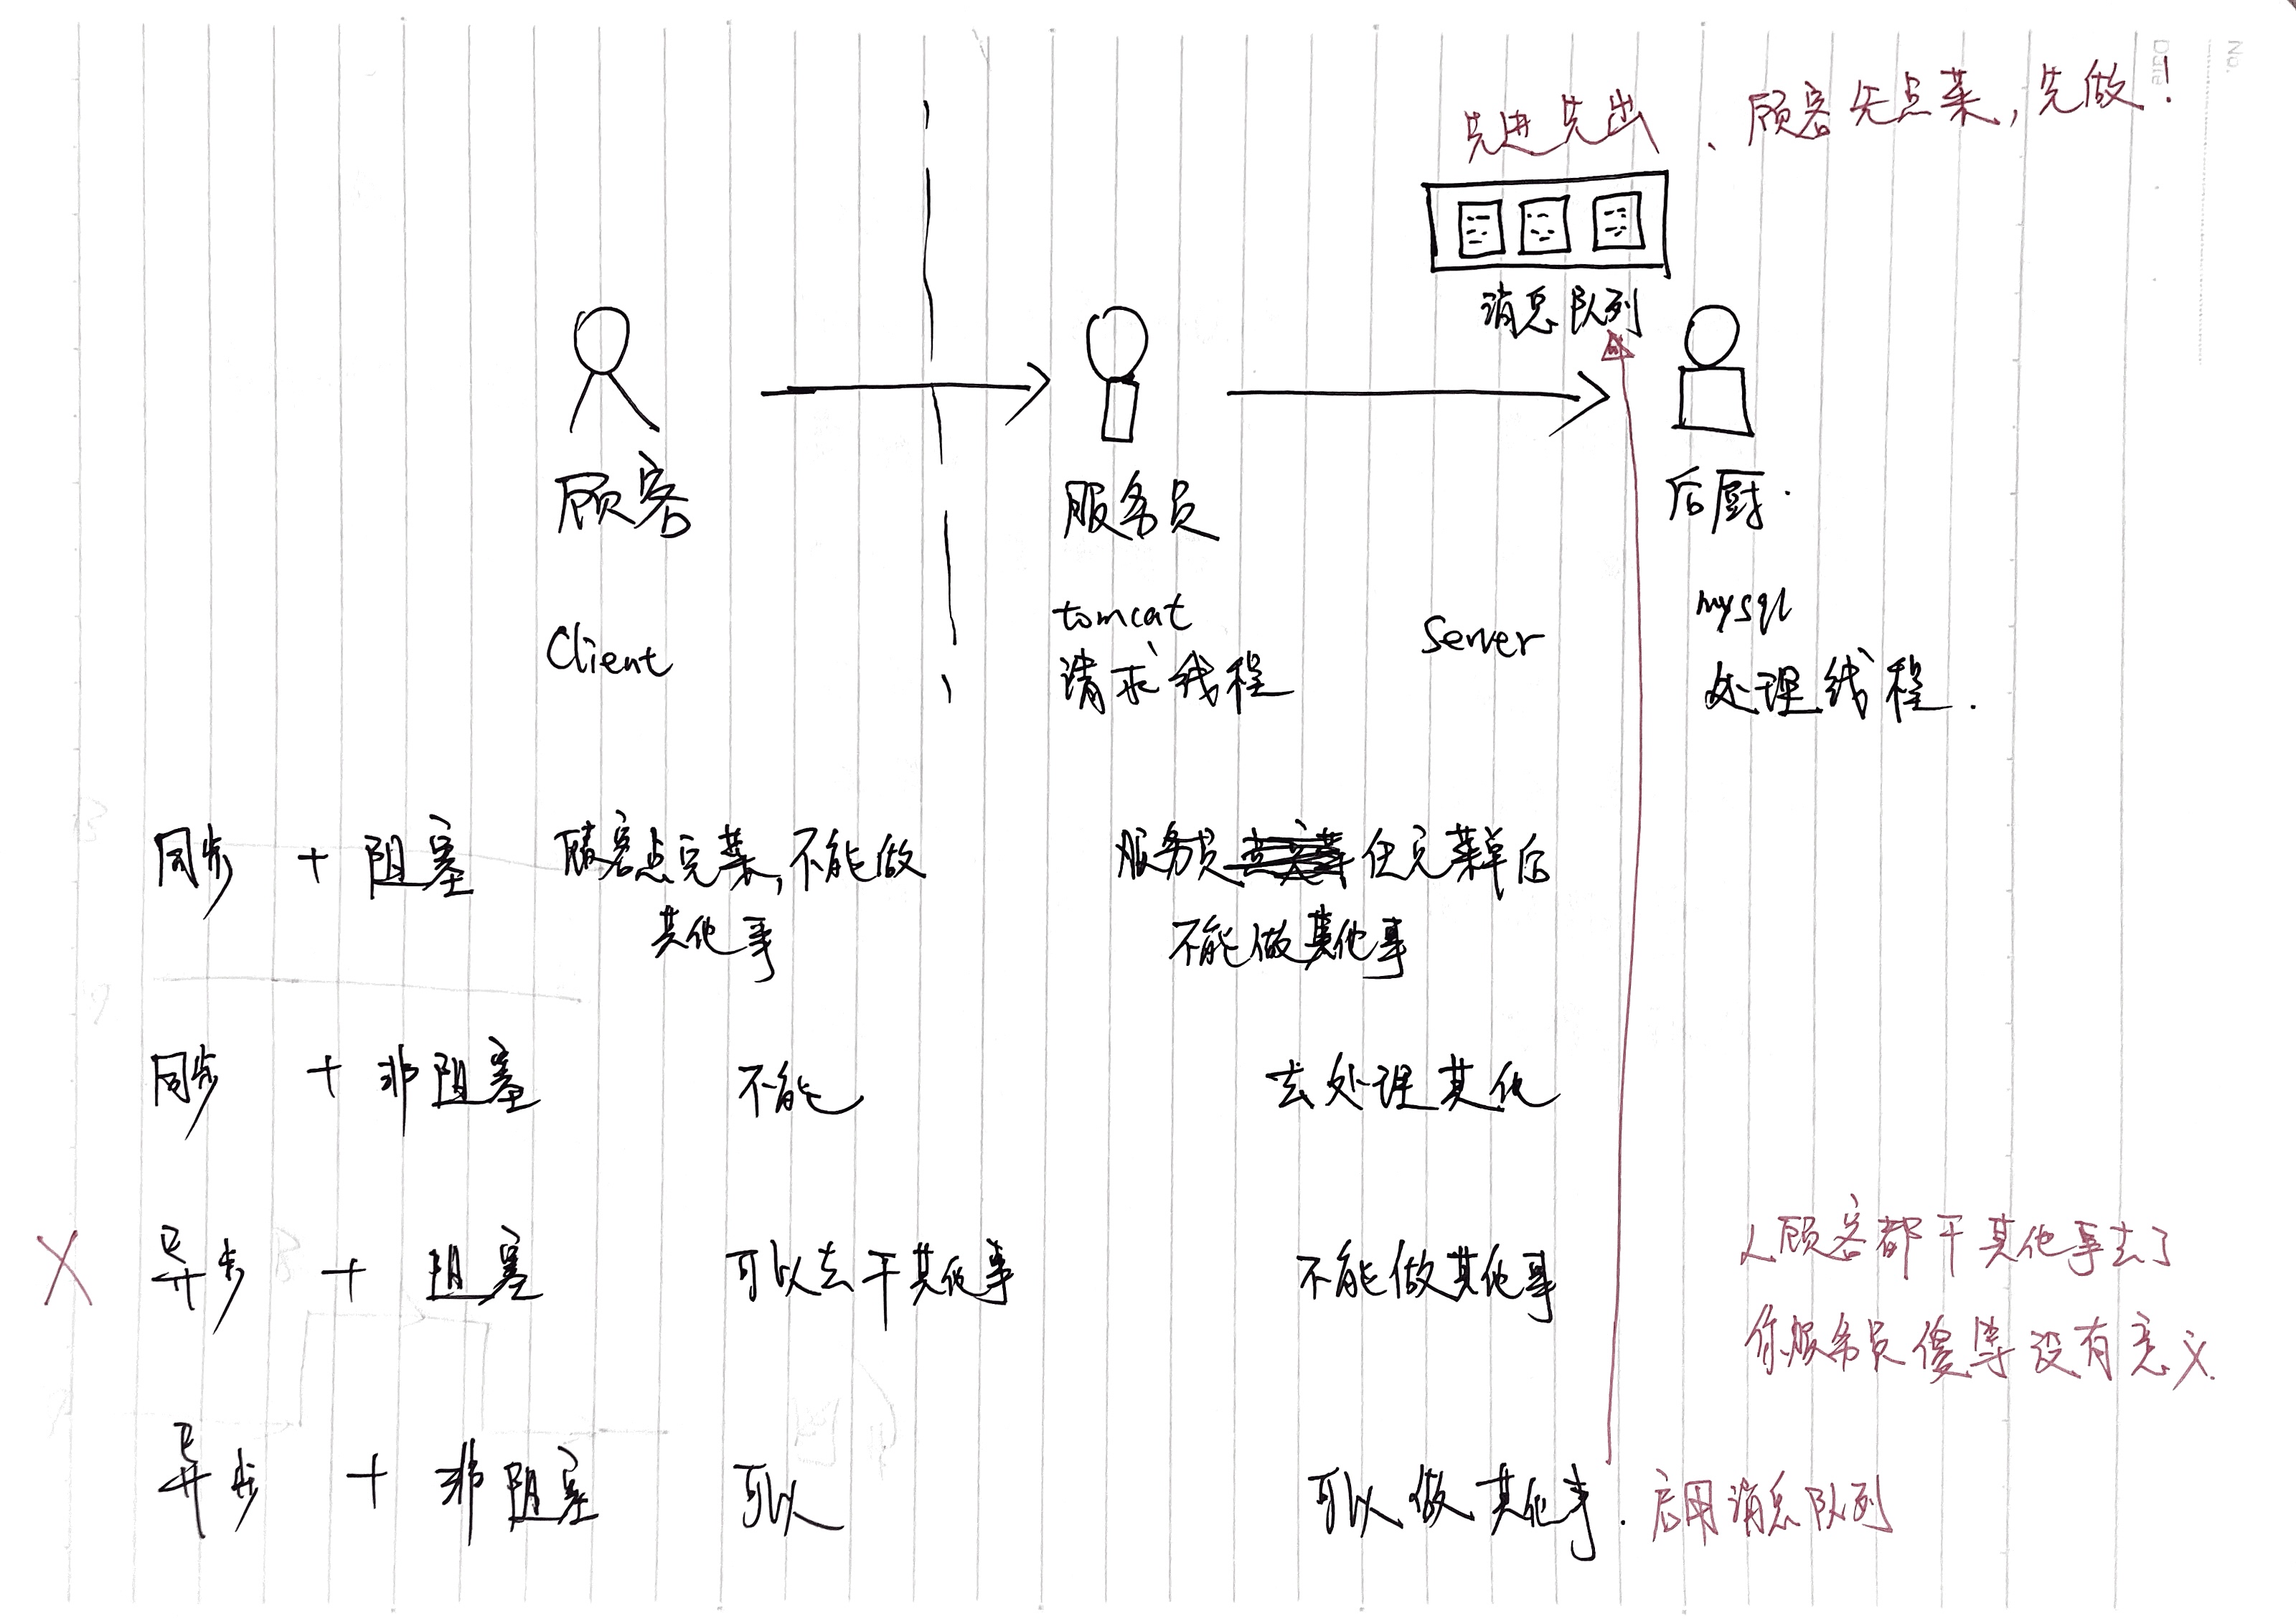 No.
Date
先进先出、顾客先点菜,先做!
消息队列
顾客
服务员
后厨.
Client
tomcat
请求线程
Server
mysql
处理线程.
同步 + 阻塞
顾客点完菜,不能做
其他事
服务员 任完菜单后
不能做其他事
同步 + 非阻塞
不能
去处理其他
X 异步 + 阻塞
可以去干其他事
不能做其他事
人顾客都干其他事去了
你服务员傻等没有意义.
异步 + 非阻塞
可以
可以做其他事.
启用消息队列